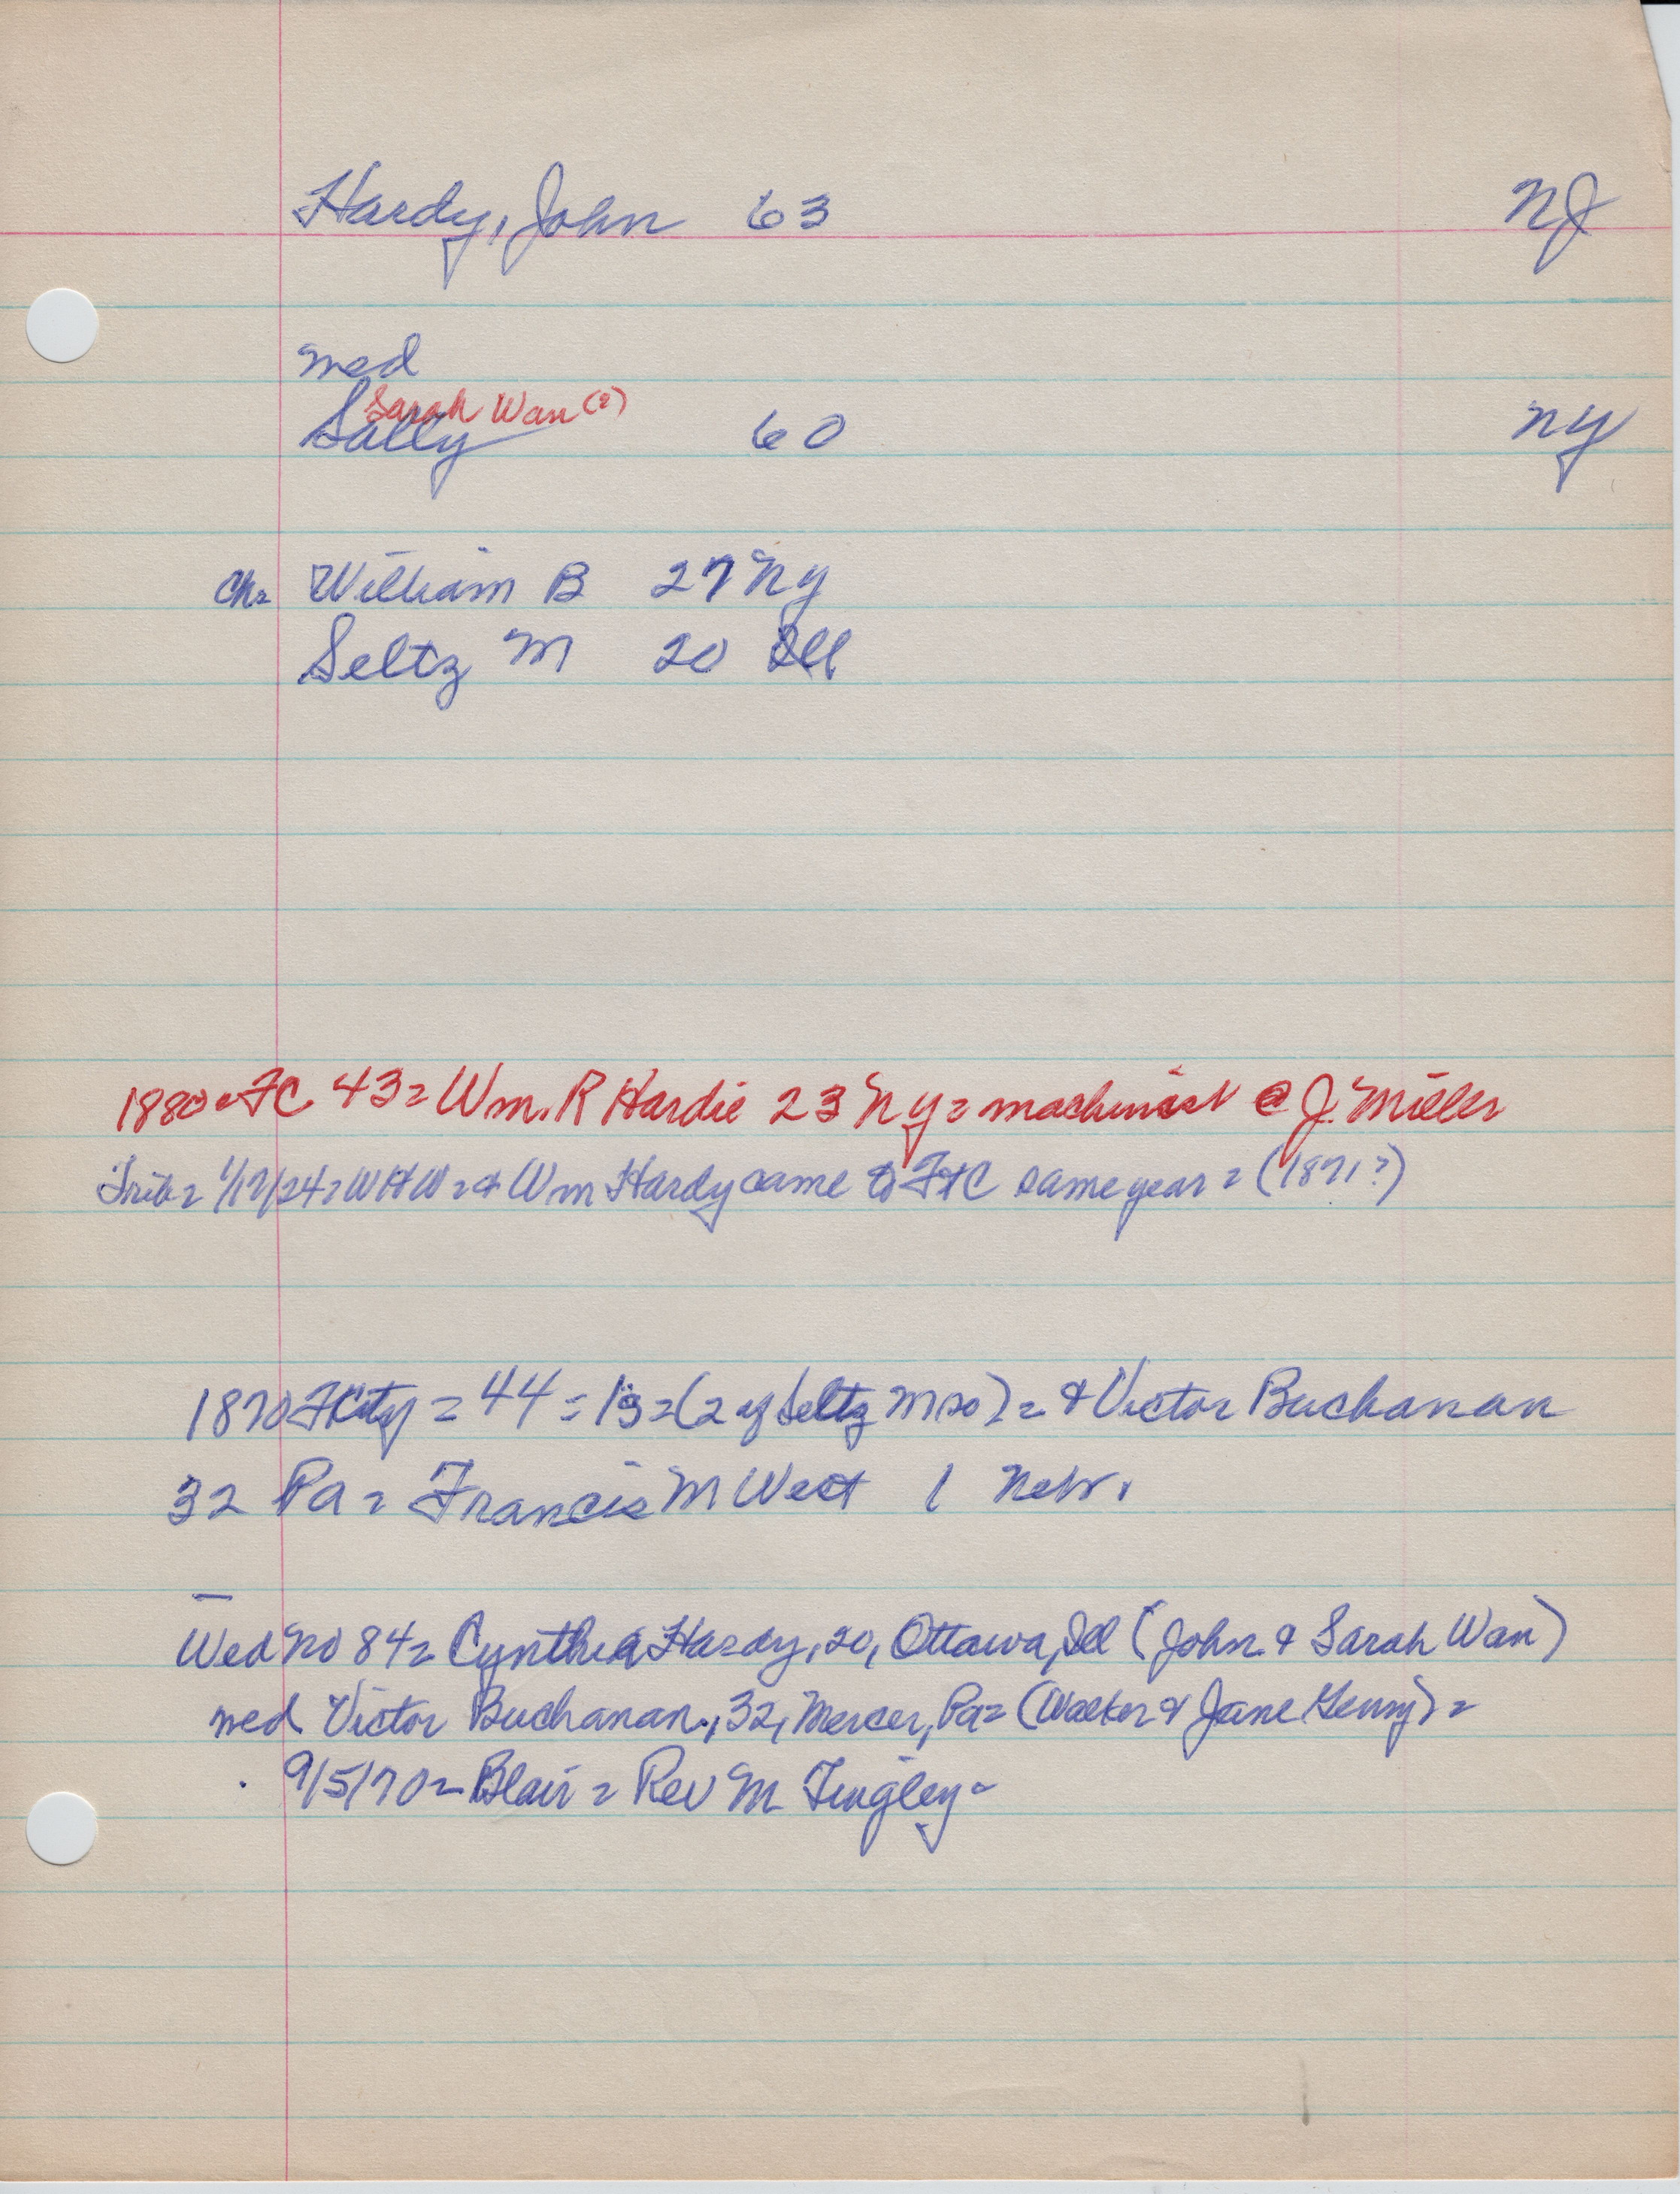 Hardy, John 63 NJ
med
Sarah Wan (?)
Sally 60 NY
ch= William B 27 NY
Seltz M 20 Ill
1880= FC 43= Wm. R Hardie 23 NY= machinist @ J. Miller
Trib= 1/17/24= WHW= & Wm Hardy came to FtC same year= (1871?)
1870 FCity = 44 = = (2 y Seltz M 20) = & Victor Buchanan
32 Pa = Francis M West 1 Nebr.
Wed No 84= Cynthia Hardy, 20, Ottawa, Ill (John & Sarah Wan)
med Victor Buchanan, 32, Mercer, Pa= (Walker & Jane) =
9/5/70 = Blair = Rev M Tingley=